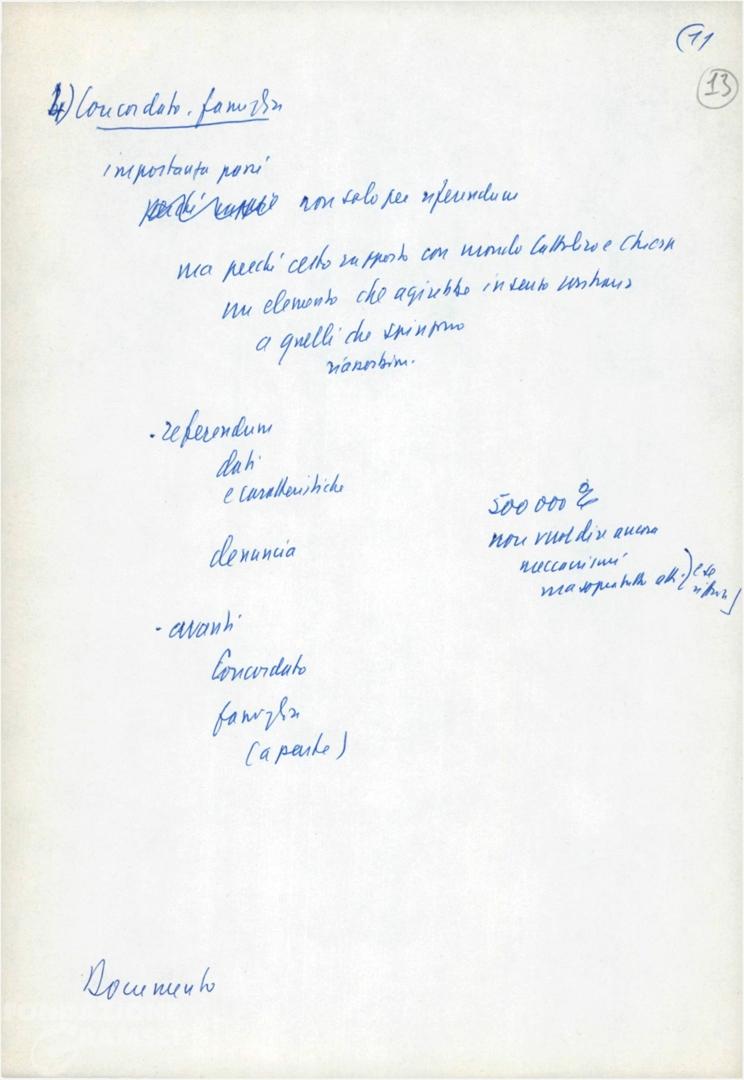 (11
13
4) Concordato. famiglia
importanza
non solo per referendum
ma perché certo rapporto con mondo cattolico e Chiesa
un elemento che agirebbe in senso contrario
a quelli che spingono
. referendum
dati
e caratteristiche
denuncia
500 000
non vuol dire ancora
meccanismi
ma soprattutto
- avanti
Concordato
famiglia
(a parte)
Documento
FONDAZIONE
GRAMSCI